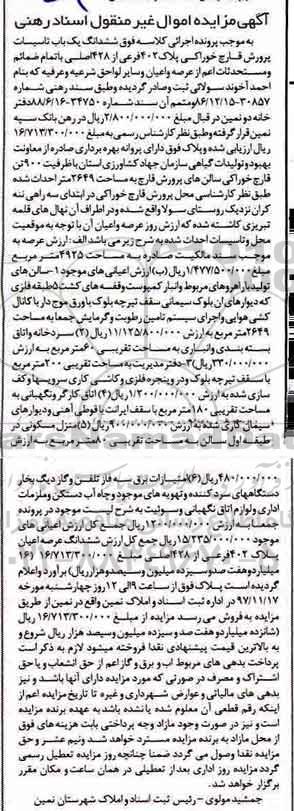 آگهی مزایده اموال غیر منقول اسناد رهنی
به موجب پرونده اجرائی کلاسه فوق ششدانگ یک باب تاسیسات
پرورش قارچ خوراکی پلاک ۴۰۲ فرعی از ۴۲۸ اصلی با تمام ضمائم
ومستحدثات اعم از عرصه واعیان وسایر لواحق شرعیه وعرفیه که بنام
احمد آخوند سولائی ثبت وصادر گردیده وطبق سند رهنی شماره
۳۰۸۵۷-۸۶/۱۲/۱۵ ومتمم آن سند شماره ۳۴۷۵۰-۸۸/۶/۱۶ دفتر
خانه دو نمین در قبال مبلغ ۲/۸۰۰/۰۰۰/۰۰۰ ریال در رهن بانک سپه
نمین قرار گرفته وطبق نظر کارشناس رسمی به مبلغ ۱۶/۷۱۳/۳۰۰/۰۰۰
ریال ارزیابی شده وپلاک فوق دارای پروانه بهره برداری صادره از معاونت
بهبود وتولیدات گیاهی سازمان جهاد کشاورزی استان با ظرفیت ۹۰۰ تن
قارچ خوراکی سالن های پرورش قارچ به مساحت ۲۶۴۹ متر احداث شده
طبق نظر کارشناسی محل پرورش قارچ خوراکی در ابتدای سه راهی ننه
کران نزدیک روستای سولا واقع شده ودر اطراف آن نهال های قلمه
تبریزی کاشته شده که ارزش روز عرصه واعیان آن با توجه به موقعیت
محل وتاسیسات احداث شده به شرح زیر می باشد الف: ارزش عرصه به
موجب سند مالکیت صادره به مساحت ۴۹۲۵ متر مربع
مبلغ ۱/۴۷۷/۵۰۰/۰۰۰ ریال (ب) ارزش اعیانی های موجود ۱-سالن های
تولید با راهروهای مربوط وانبار کمپوست وقفسه های کشت ۵ طبقه فلزی
که دیوارهای آن بلوک سیمانی سقف تیرچه بلوک با ورق موج دار با کانال
کشی هوایی واجرای سیستم تامین رطوبت وگرمایش جمعا به مساحت
۲۶۴۹ متر مربع به ارزش ۱۱/۱۲۵/۸۰۰/۰۰۰ ریال (۲) سردخانه واتاق
بسته بندی وانباری به مساحت تقریبی ۶۰ متر مربع به ارزش
۳۳۰/۰۰۰/۰۰۰ ریال (۳-دفتر مدیریت به مساحت تقریبی ۲۰۰ متر مربع
با سقف تیرچه بلوک ودر وپنجره فلزی وکاشی کاری سرویسها وکف
سازی شده به ارزش ۱/۲۰۰/۰۰۰/۰۰۰ ریال (۴) اتاق کارگر ونگهبانی به
مساحت تقریبی ۱۸۰ متر مربع با سقف ایرانیت با قوطی آهنی ودیوارهای
سیمان کاری شده به ارزش ریال (۵) منزل مسکونی در
طبقه اول سالن به مساحت تقریبی ۸۰ متر مربع به ارزش
۴۸۰/۰۰۰/۰۰۰ ریال (۶) امتیازات برق سه فاز تلفن وگاز دیگ بخار
دستگاههای سرد کننده وتهویه های موجود وچاه آب دستگن وملزمات
اداری ولوازم اتاق نگهبانی وسوئیت به شرح لیست موجود در پرونده
جمعا به ارزش ریال جمع کل ارزش اعیانی های
موجود ۱۵/۲۳۵/۸۰۰/۰۰۰ ریال جمع کل ارزش ششدانگ عرصه اعیان
پلاک ۴۰۲ فرعی از ۴۲۸ اصلی مبلغ ۱۶/۷۱۳/۳۰۰/۰۰۰ (۱۶
میلیارد وهفت صد وسیزده میلیون وسیصد هزار ریال) برآورد واعلام
گردیده است پلاک فوق از ساعت ۹ الی ۱۲ روز چهارشنبه مورخه
۹۷/۱۱/۱۷ در اداره ثبت اسناد و املاک نمین واقع در نمین از طریق
مزایده به فروش می رسد مزایده از مبلغ ۱۶/۷۱۳/۳۰۰/۰۰۰ ریال
(شانزده میلیارد وهفت صد و سیزده میلیون وسیصد هزار ریال شروع و
به بالاترین قیمت پیشنهادی نقدا فروخته میشود لازم به ذکر است
پرداخت بدهی های مربوط اب و برق و گاز اعم از حق انشعاب و یا حق
اشتراک و مصرف در صورتی که مورد مزایده دارای آنها باشد و نیز
بدهی های مالیاتی و عوارض شهرداری و غیره تا تاریخ مزایده اعم از
اینکه رقم قطعی آن معلوم شده یا نشده باشد به عهده برنده مزایده
است و نیز در صورت وجود مازاد وجه پرداختی بابت هزینه های فوق
از محل مازاد به برنده مزایده مسترد خواهد شد ونیم عشر و حق
مزایده نقدا وصول می گردد ضمنا چنانچه روز مزایده تعطیل رسمی
گردد مزایده روز اداری بعد از تعطیلی در همان ساعت و مکان مقرر
برگزار خواهد شد.
جمشید مولوی – رئیس ثبت اسناد و املاک شهرستان نمین